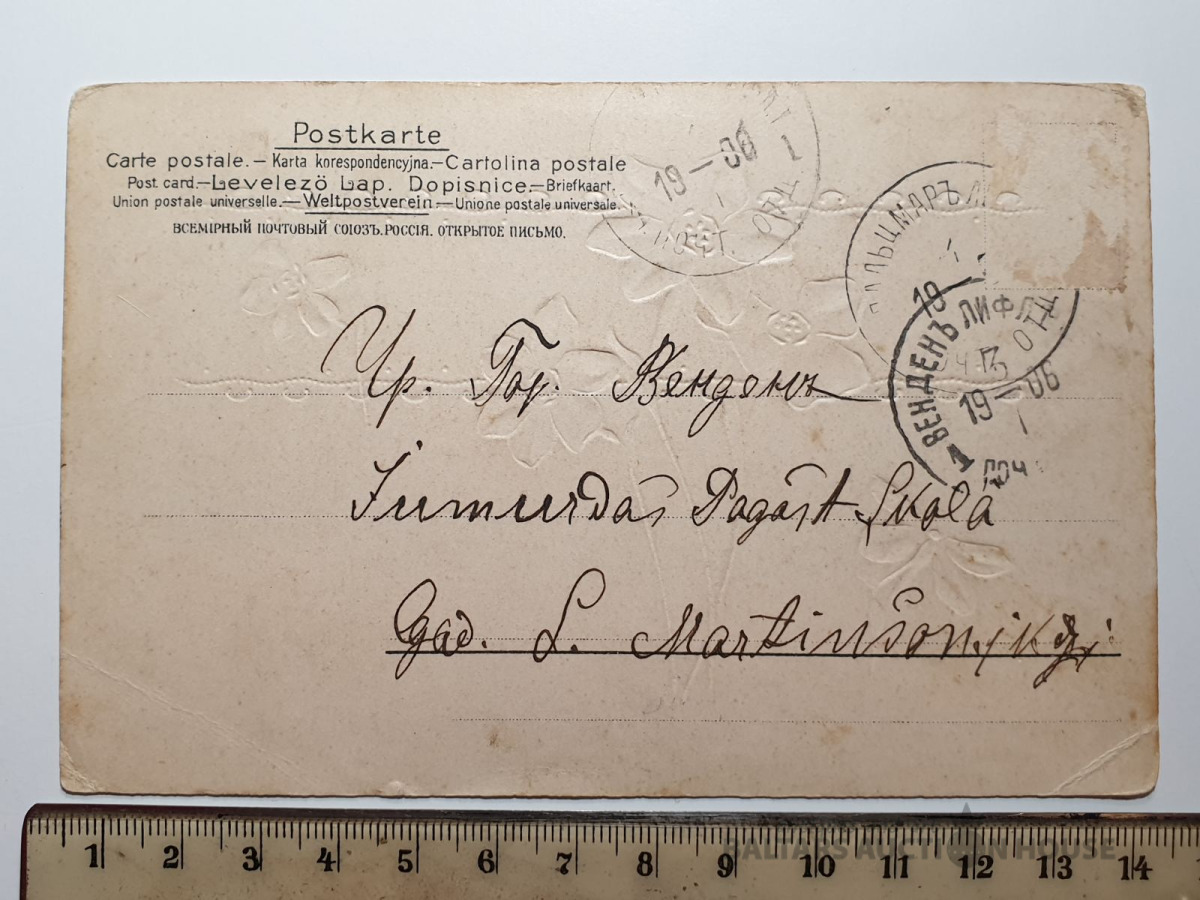 Postkarte
Carte postale.— Karta korespondencyjna.—Cartolina postale
Post card.—Levelező Lap. Dopisnice.—Briefkaart.
Union postale universelle.—Weltpostverein.—Unione postale universale.
ВСЕМІРНЫЙ ПОЧТОВЫЙ СОЮЗЪ.РОССІЯ. ОТКРЫТОЕ ПИСЬМО.
19—06
1
ОТД.
ПАЛЬЦМАРЪ
19
ОТД
ВЕНДЕНЪ ЛИФЛ
19—06
1
ПОЧ
Чр. Гор. Венденъ
Jumurdas Pagast Skola
Gad. L. Martinson
1 2 3 4 5 6 7 8 9 10 11 12 13 14
BALTARS AUCTION HOUSE